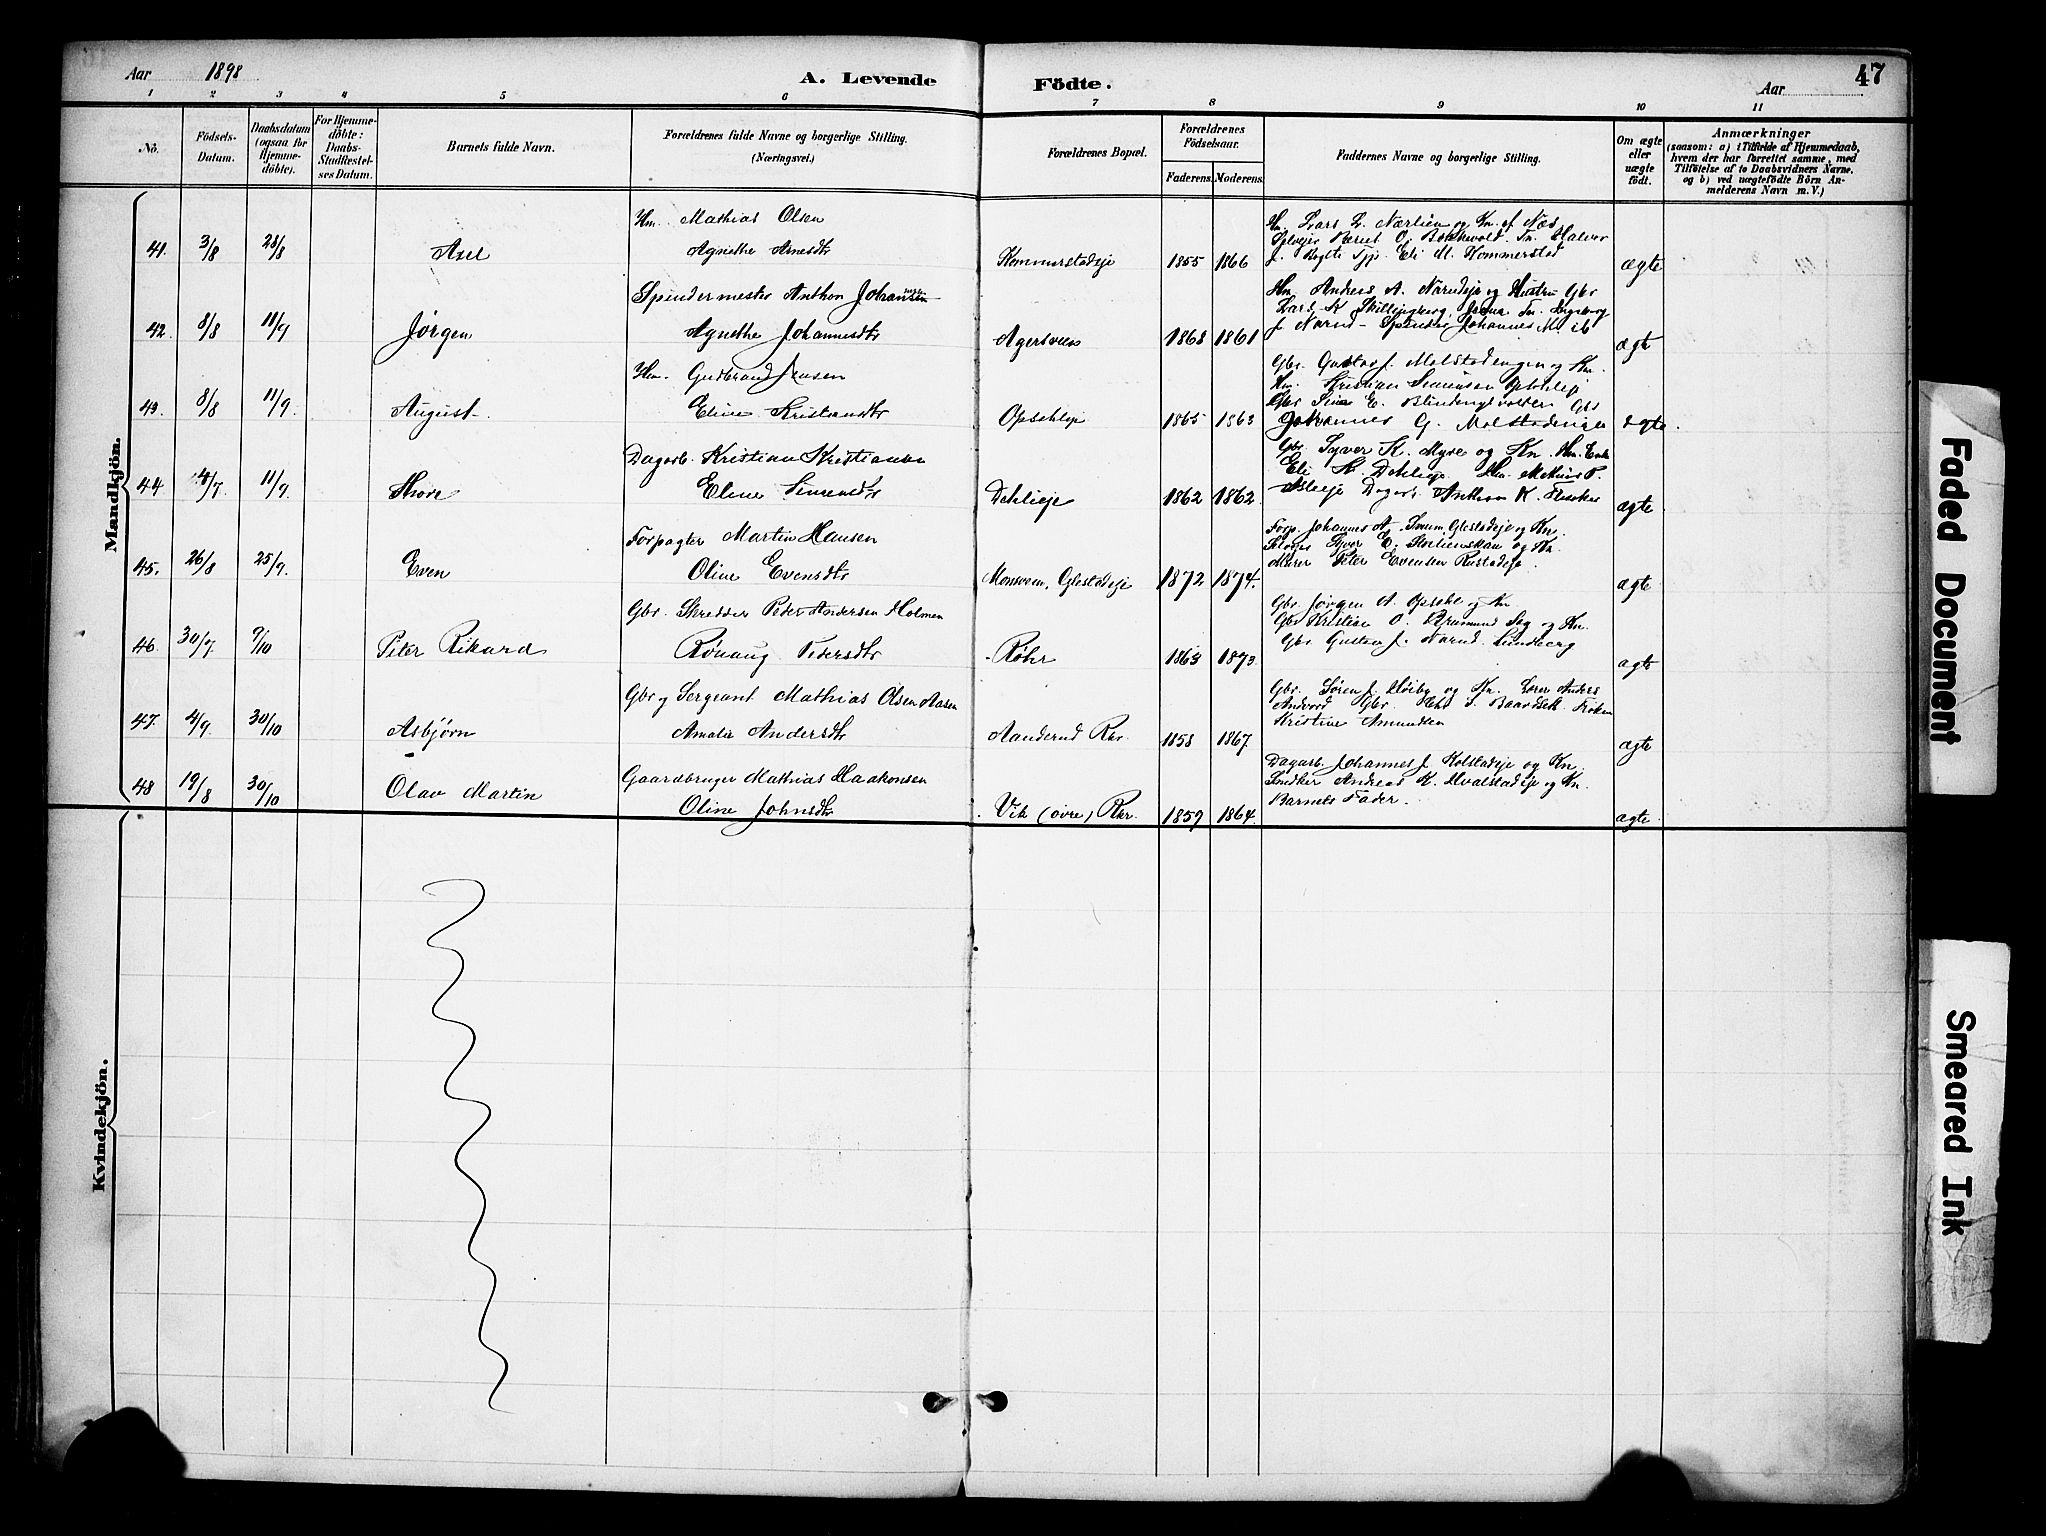 Aar 1898
A. Levende Födte.
Aar 47
1 2 3 4 5 6 7 8 9 10 11
Nö.
Födsels-
Datum.
Daabsdatum
(ogsaa for
Hjemme-
döbte).
For Hjemme-
döbte:
Daabs-
Stadfæstel-
ses Datum.
Barnets fulde Navn.
Forældrenes fulde Navne og borgerlige Stilling.
(Næringsvei.)
Forældrenes Bopæl.
Forældrenes
Födselsaar.
Faderens. Moderens.
Faddernes Navne og borgerlige Stilling.
Om ægte
eller
uægte
födt.
Anmærkninger
(saasom: a) i Tilfælde af Hjemmedaab,
hvem der har forrettet samme, med
Tilföielse af to Daabsvidners Navne,
og b) ved uægtefödte Börn An-
melderens Navn m. V.)
Mandkjön.
41. 3/8 28/8 Axel
Hm. Mathias Olsen
Agnethe Arnesdtr
Kommerstadeje 1855 1866
Hm. Lars L. Nærlien og Kn. af Næs
Selvejer Bernt O. Bakkevold. Tn. Halvor
J. Bøgte Tjp. Eli M. Kommerstad
ægte
42. 8/8 11/9 Jörgen
Spindermester Anthon Johansen
Agnethe Johannesdtr
Agersveen 1868 1861
Hm. Andreas A. Narudeje og Hustru Gbr
Lars K. Skillingberg, Tn. Ingeborg
J. Narud - Spinder Johannes M. ib
ægte
43. 8/8 11/9 August
Hm. Gudbrand Jensen
Eline Kristiansdtr
Opsahleje 1865 1863
Gbr. Gustav J. Molstadengen og Kn.
Hm. Kristian Simensen Opsahleje
Gbr E. Blindingsvolden Gbs
Johannes G. Molstadengen
ægte.
44 4/7 11/9 Thore
Dagarb. Kristian Kristiansen
Eline Simensdtr
Dehlieje 1862 1862
Gbr. Syver K. Myre og Kn. Hm. Enke
Eli K. Dehlieje Hm. Mathias P.
Dagarb. Anthon K.
ægte
45. 26/8 25/9. Even
Forpagter Martin Hansen
Oline Evensdtr
Monsveen, Glestadeje 1872 1874.
Forp. Johannes A. Glestadeje og Kn.
Selvejer Syver E. og Kn.
Murer Peter Evensen Rustadeje.
ægte
46. 30/7. 9/10 Peter Rikard
Gbr. Skredder Peder Andersen Holmen
Rönaug Pedersdtr
Røhr 1863 1873.
Gbr. Jörgen A. Opsahl og Kn
Gbr Kristian O. og Kn.
Gbr. Gustav J. Narud. Lundberg
ægte
47. 4/9. 30/10 Asbjørn
Gbr og Sergeant Mathias Olsen Aasen
Amalie Andersdtr
Aanderud Rkr. 1858 1867.
Gbr. Sören J. Høiby og Kn. Lærer Anders
Gbr. Chr. Frøken
Kristine Amundsen
ægte
48 19/8 30/10 Olav Martin
Gaardbruger Mathias Haakonsen
Oline Johnsdtr
Vik (øvre) Rkr. 1859 1864.
Dagarb. Johannes J. Kolstadeje og Kn.
Snedker Andreas K. Hvalstadeje og Kn.
Barnets Fader.
ægte
Kvindekjön.
Faded Document
Smeared Ink